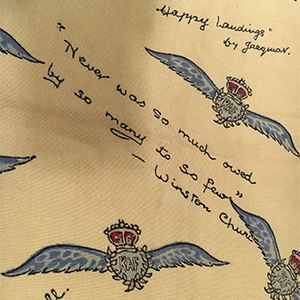 "Happy Landings"
by Jacqmar.
"Never was so much owed
by so many to so few"
— Winston Churc
RAF
RAF
ll.